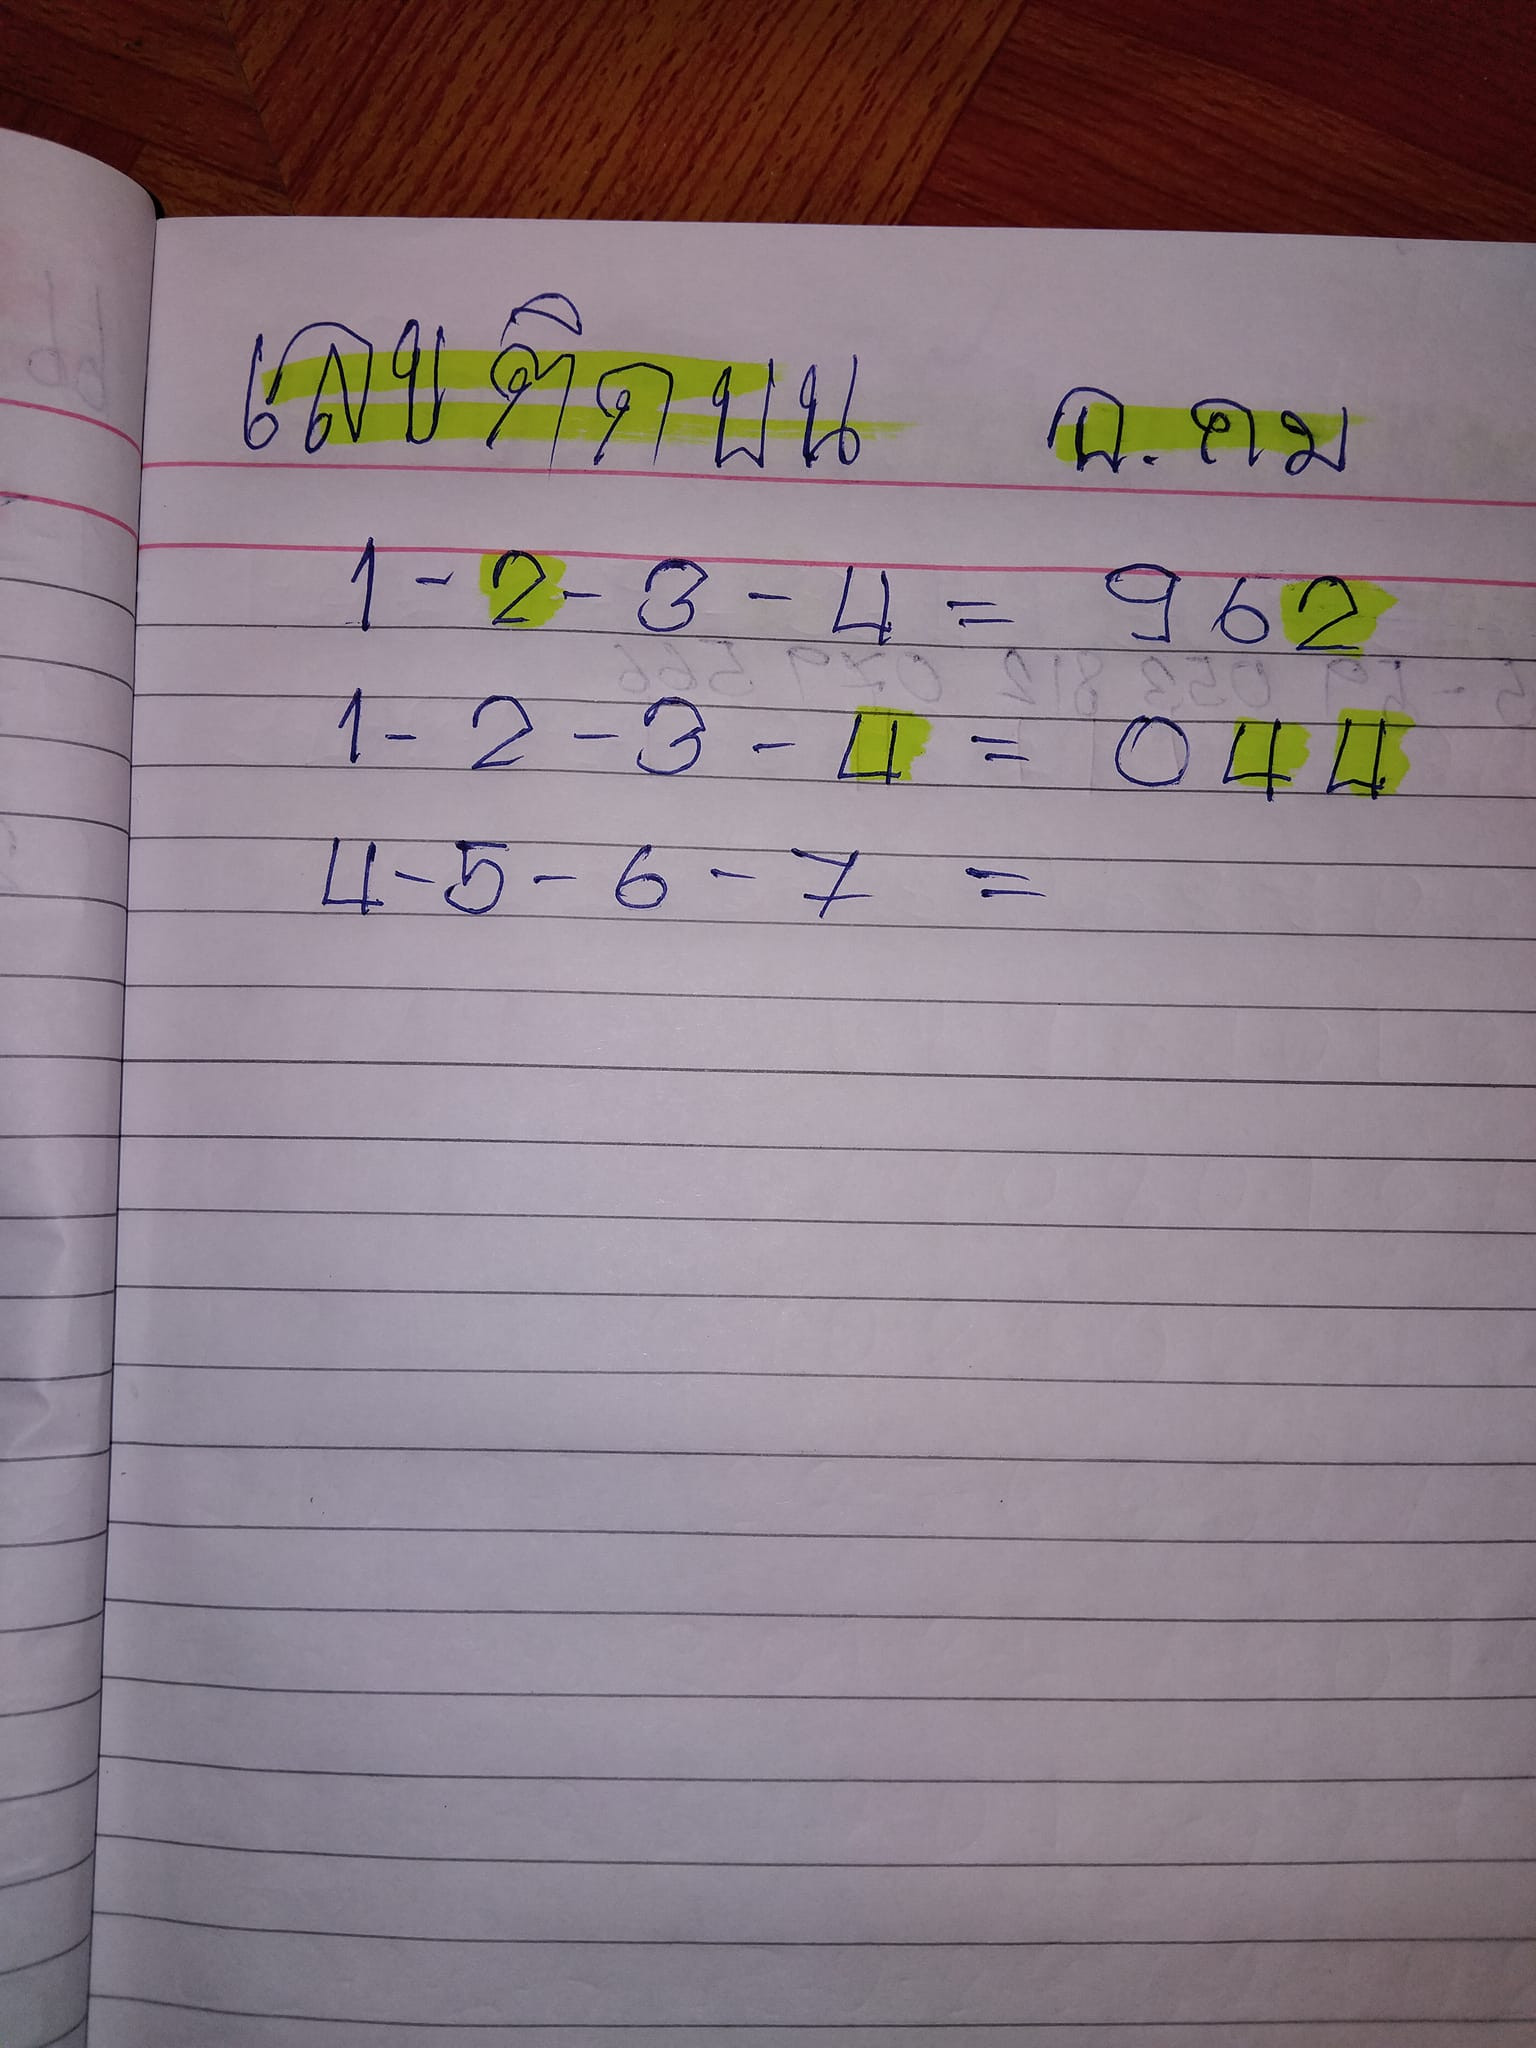 เลขติดบน อ.คม
1-2-3-4 = 962
1-2-3-4 = 044
4-5-6-7 =